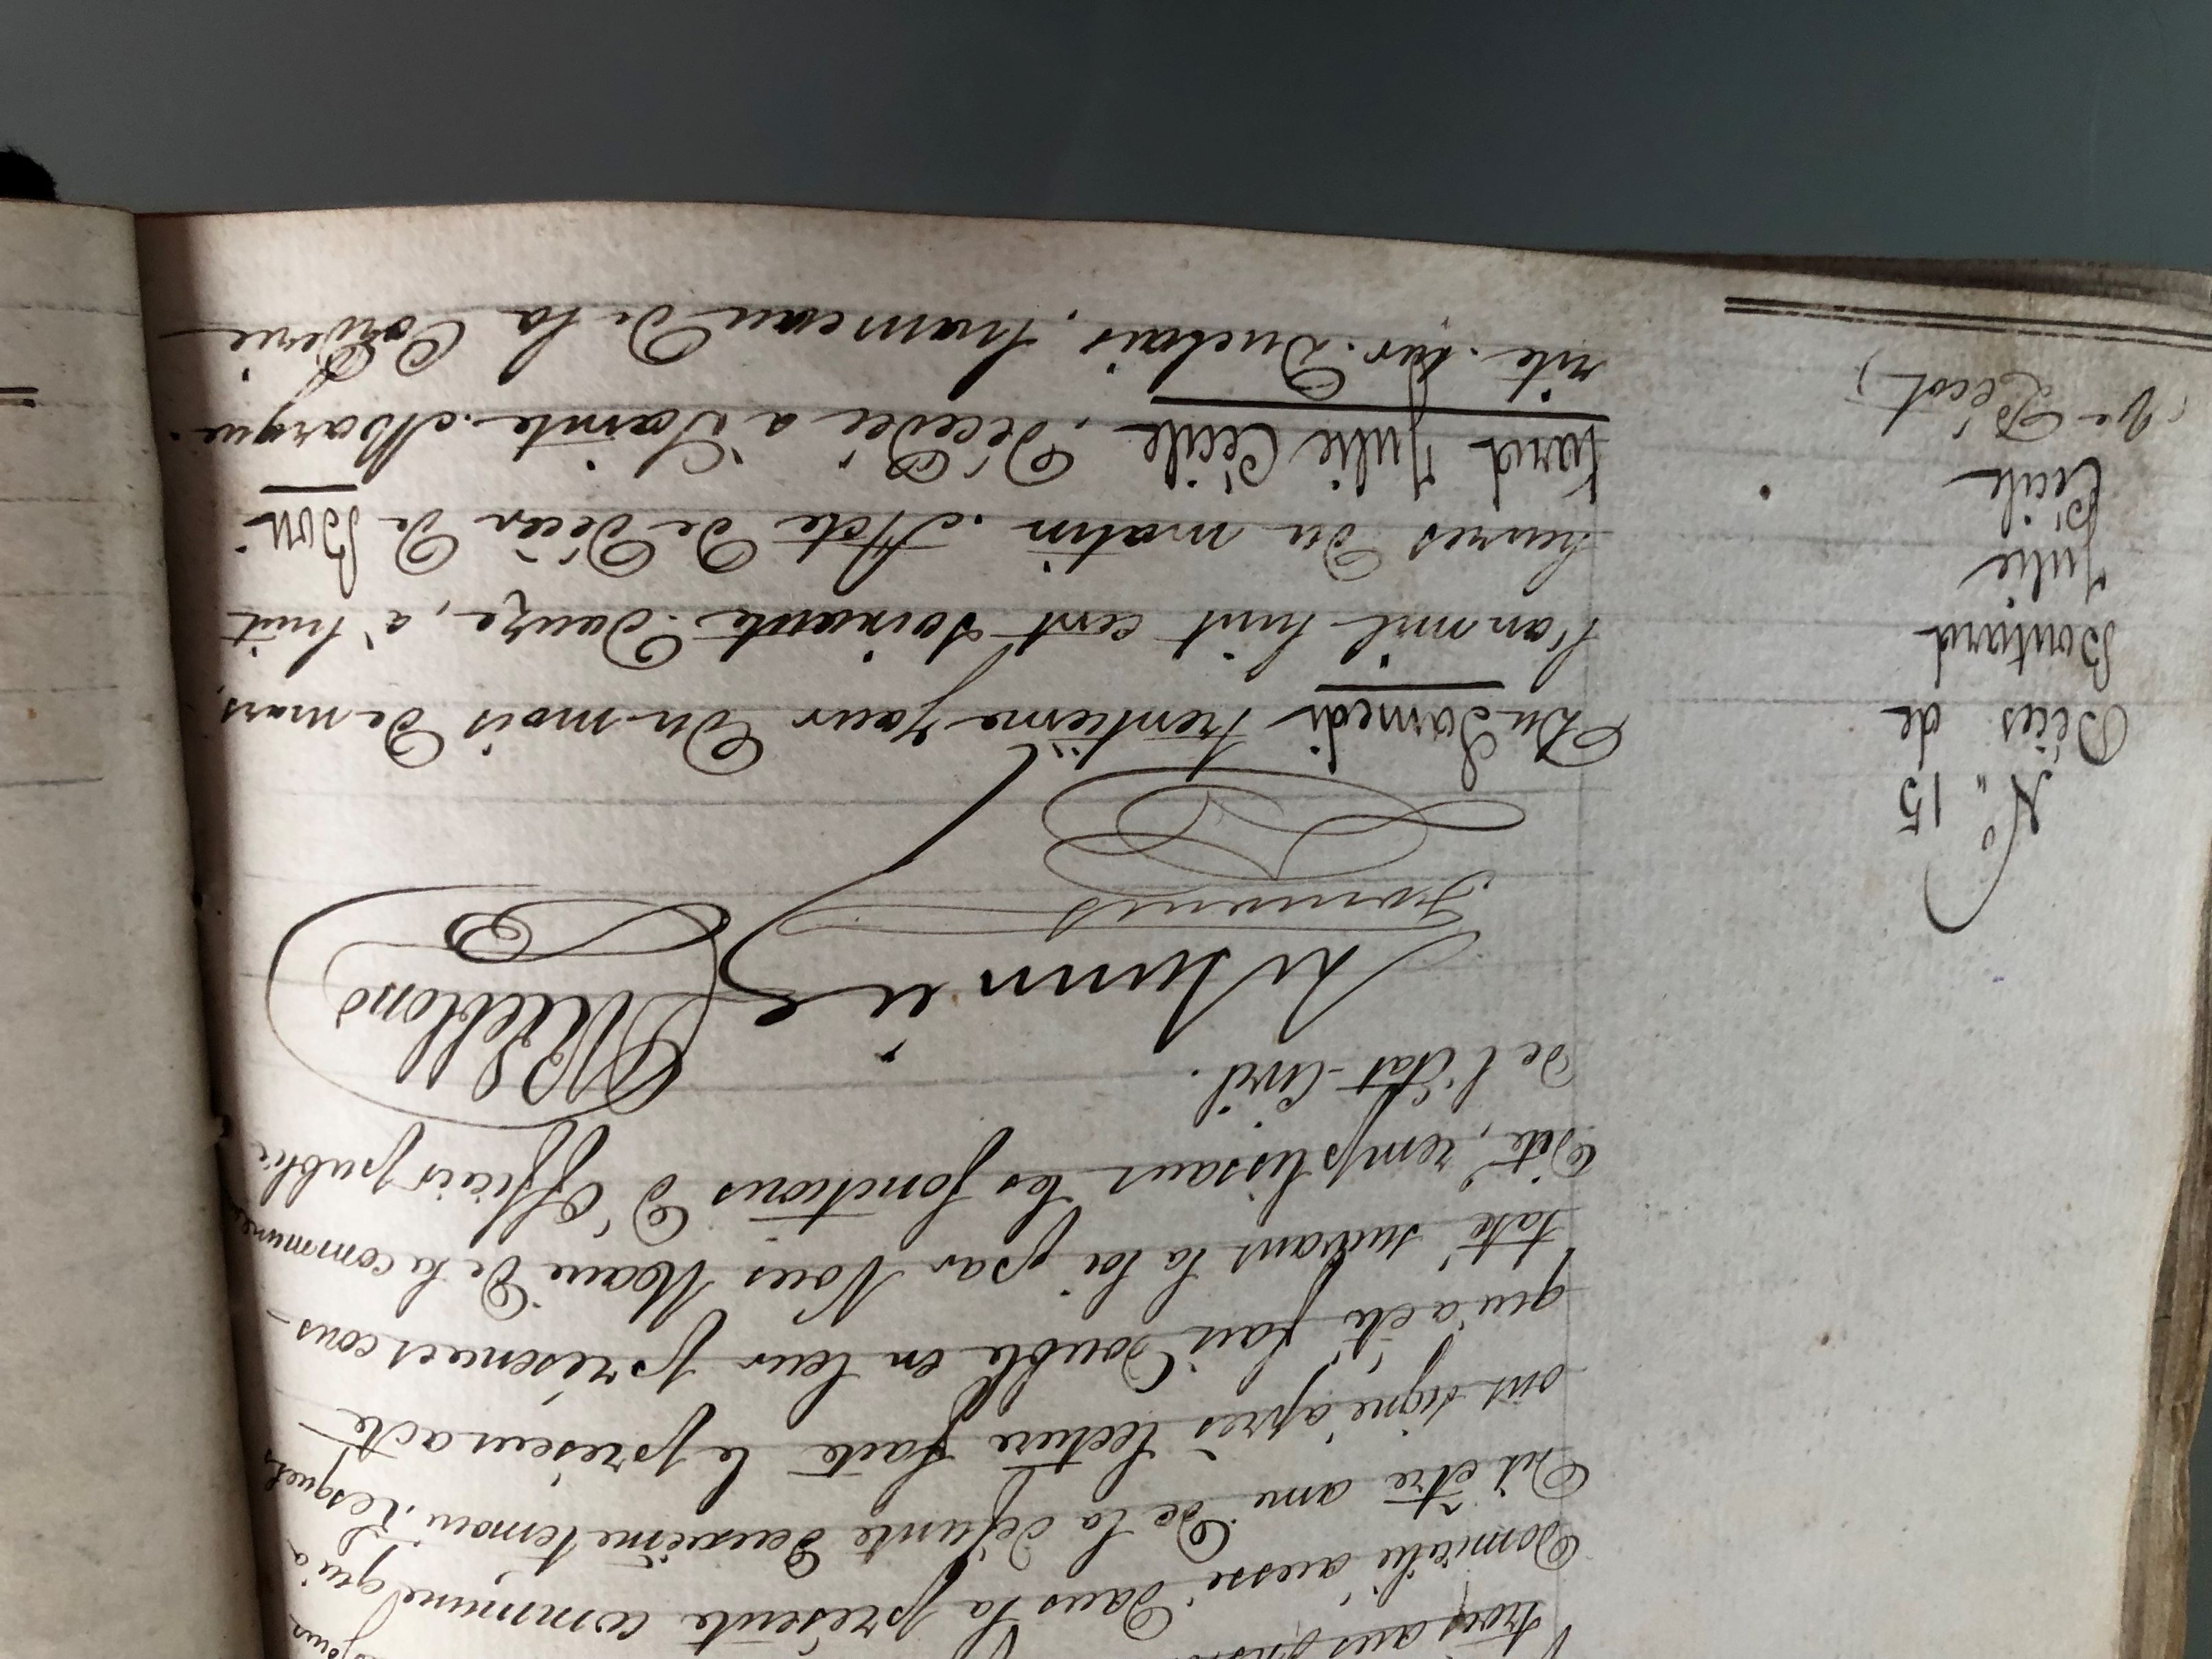 trois ans
Domicilié aussi dans la présente commune qui a
Dit être ami de la défunte Deuxième temoin. Lesquels
ont signé après lecture faite le présent acte
qui a été fait Double en leur présence et cons-
taté suivant la loi par Nous Maire De la commune
Dite, remplissant les fonctions D'Officier public
De l'état-Civil.
Leblond
N° 15
Décès de
Boutard
Julie
Cécile
(Ve Décot)
Du Samedi trentième jour Du mois De mars,
l'an mil huit cent soixante-Douze, à huit
heures Du matin. Acte De Décès De Bou-
tard Julie Cécile, Décédée à Sainte-Margue-
rite-sur-Duclair, hameau De la Corderie